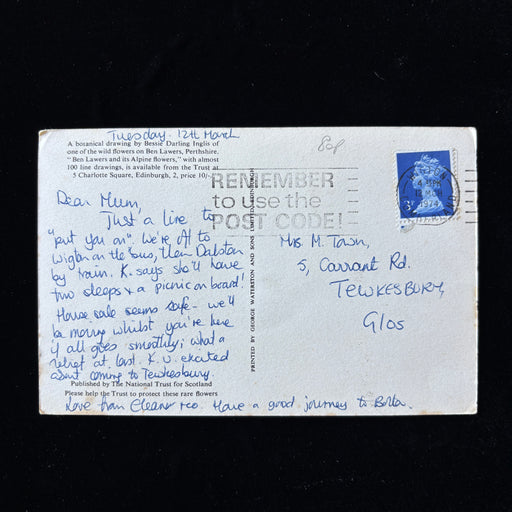 Tuesday. 12th March
A botanical drawing by Bessie Darling Inglis of
one of the wild flowers on Ben Lawers, Perthshire.
"Ben Lawers and its Alpine flowers," with almost
100 line drawings, is available from the Trust at
5 Charlotte Square, Edinburgh, 2, price 10/-
Dear Mum,
Just a line to
"put you on". We're off to
Wigton on the bus, then Dalston
by train. K. says she'll have
two sleeps & a picnic on board!
House sale seems safe - we'll
be moving whilst you're here
if all goes smoothly; what a
relief at last. K. v. excited
about coming to Tewkesbury.
Published by The National Trust for Scotland
Please help the Trust to protect these rare flowers
Love from Eleanor & co. Have a good journey to
PRINTED BY GEORGE WATERSTON AND SONS LIMITED EDINBURGH
80p
REMEMBER
to use the
POST CODE!
1974
Mrs. M. Town,
5, Carrant Rd.
TEWKESBURY,
Glos